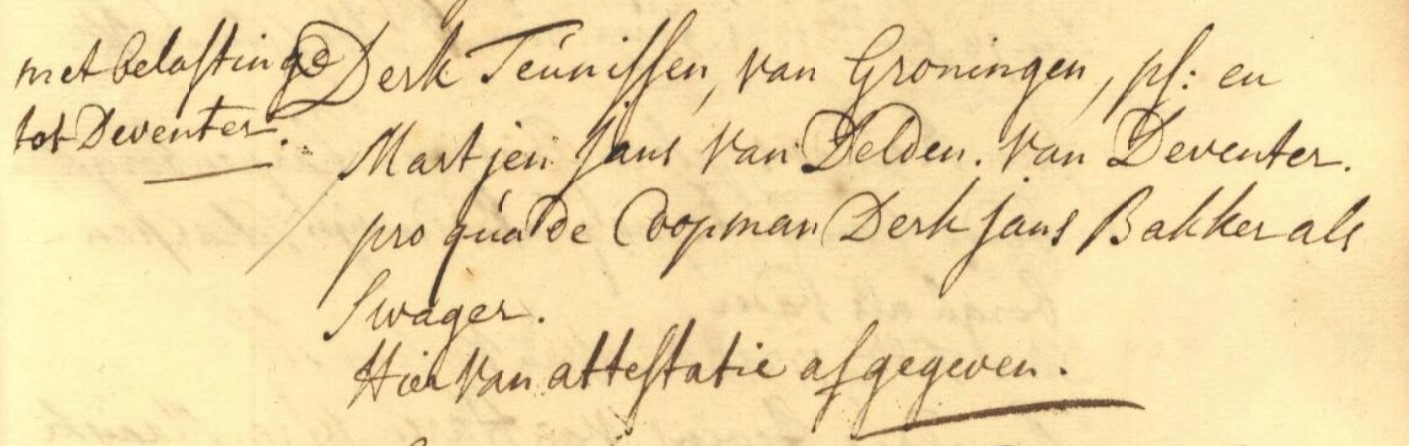 met belastinge
tot Deventer.
Derk Teunissen, van Groningen, ps: en
Martjen Jans van Delden. van Deventer.
pro qua de Coopman Derk Jans Bakker als
Swager.
Hier van attestatie afgegeven.